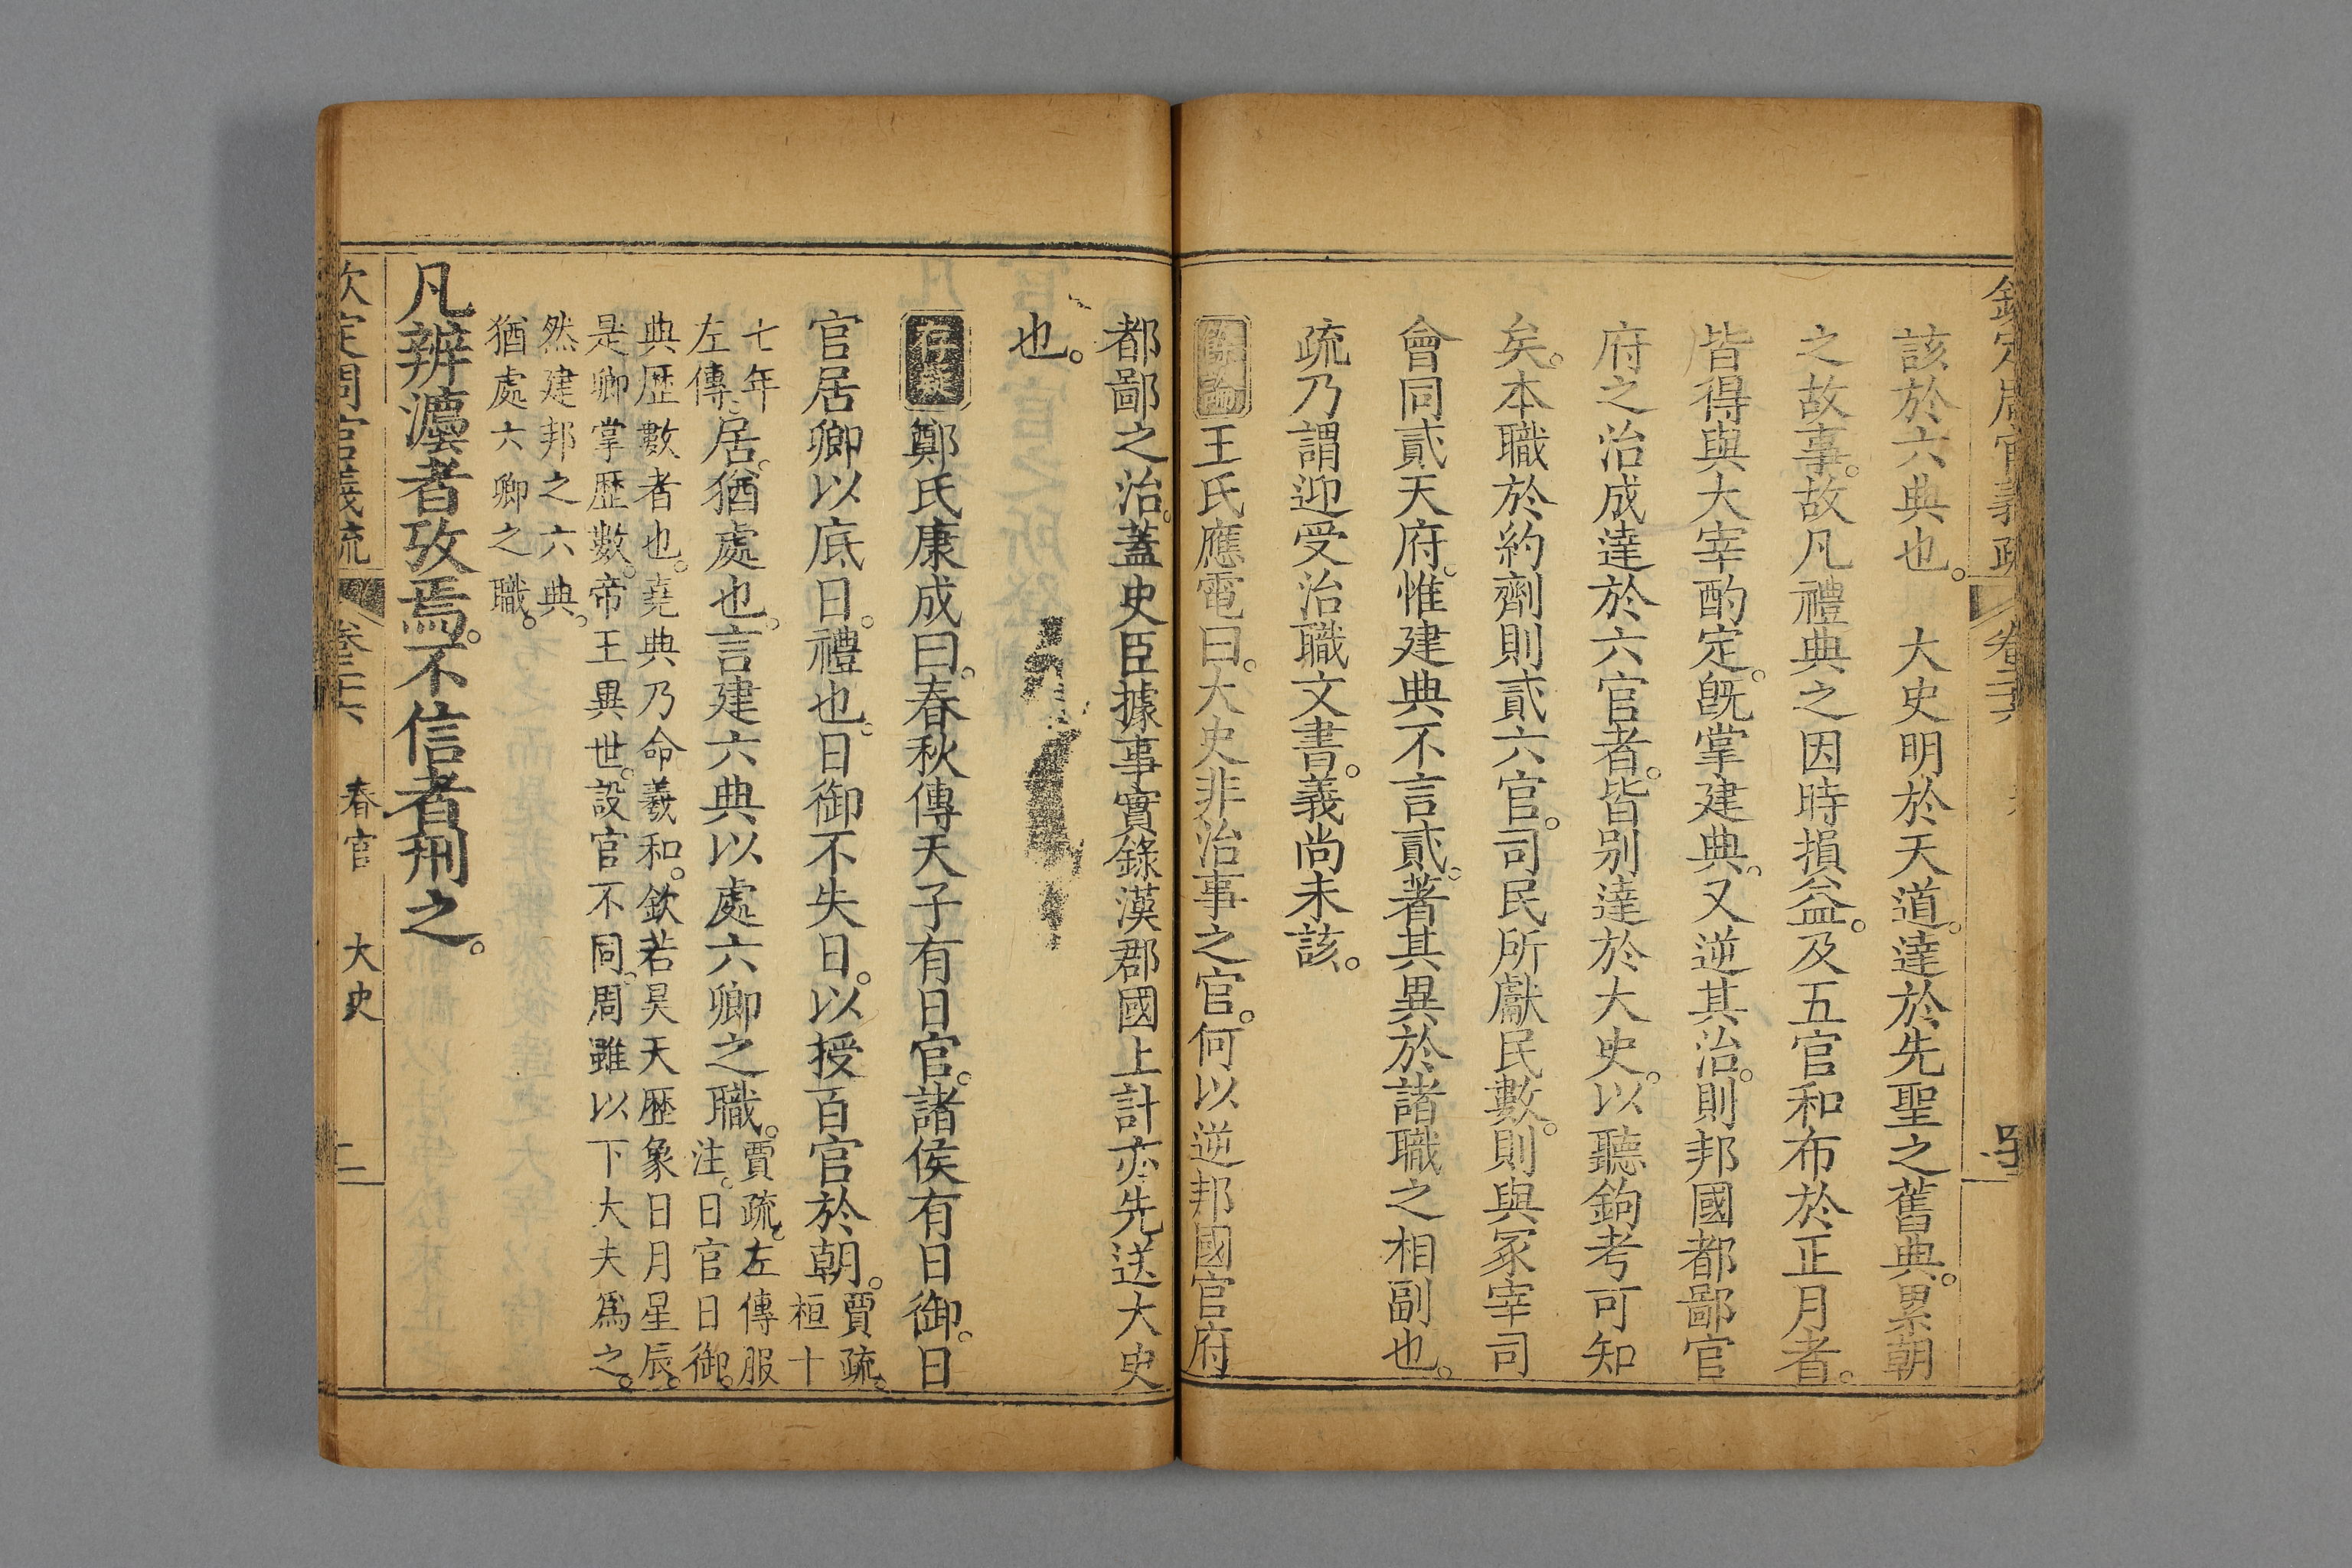 欽定周官義疏 卷二十六
該於六典也。　大史明於天道。達於先聖之舊典。累朝
之故事。故凡禮典之因時損益。及五官和布於正月者。
皆得與大宰酌定。旣掌建典。又逆其治。則邦國都鄙官
府之治成達於六官者。皆别達於大史。以聽鉤考可知
矣。本職於約劑則貳六官。司民所獻民數。則與冢宰司
會同貳天府。惟建典不言貳。著其異於諸職之相副也。
疏乃謂迎受治職文書。義尚未該。
餘論王氏應電曰。大史非治事之官。何以逆邦國官府
都鄙之治。蓋史臣據事實錄漢郡國上計亦先送大史
也。
存疑鄭氏康成曰。春秋傳天子有日官。諸侯有日御。日
官居卿以底日。禮也。日御不失日。以授百官於朝。賈疏。桓十
七年左傳。居。猶處也。言建六典以處六卿之職。賈疏。左傳服注。日官日御。
典歴數者也。堯典乃命羲和。欽若昊天歴象日月星辰。
是卿掌歴數。帝王異世。設官不同。周雖以下大夫爲之。
然建邦之六典。
猶處六卿之職。
凡辨灋者攷焉。不信者刑之。
欽定周官義疏 卷二十六 春官 大史 二